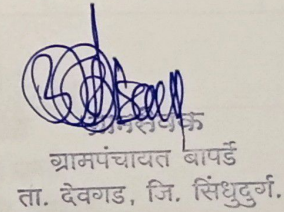 ग्रामसेवक
ग्रामपंचायत बापर्डे
ता. देवगड, जि. सिंधुदुर्ग.